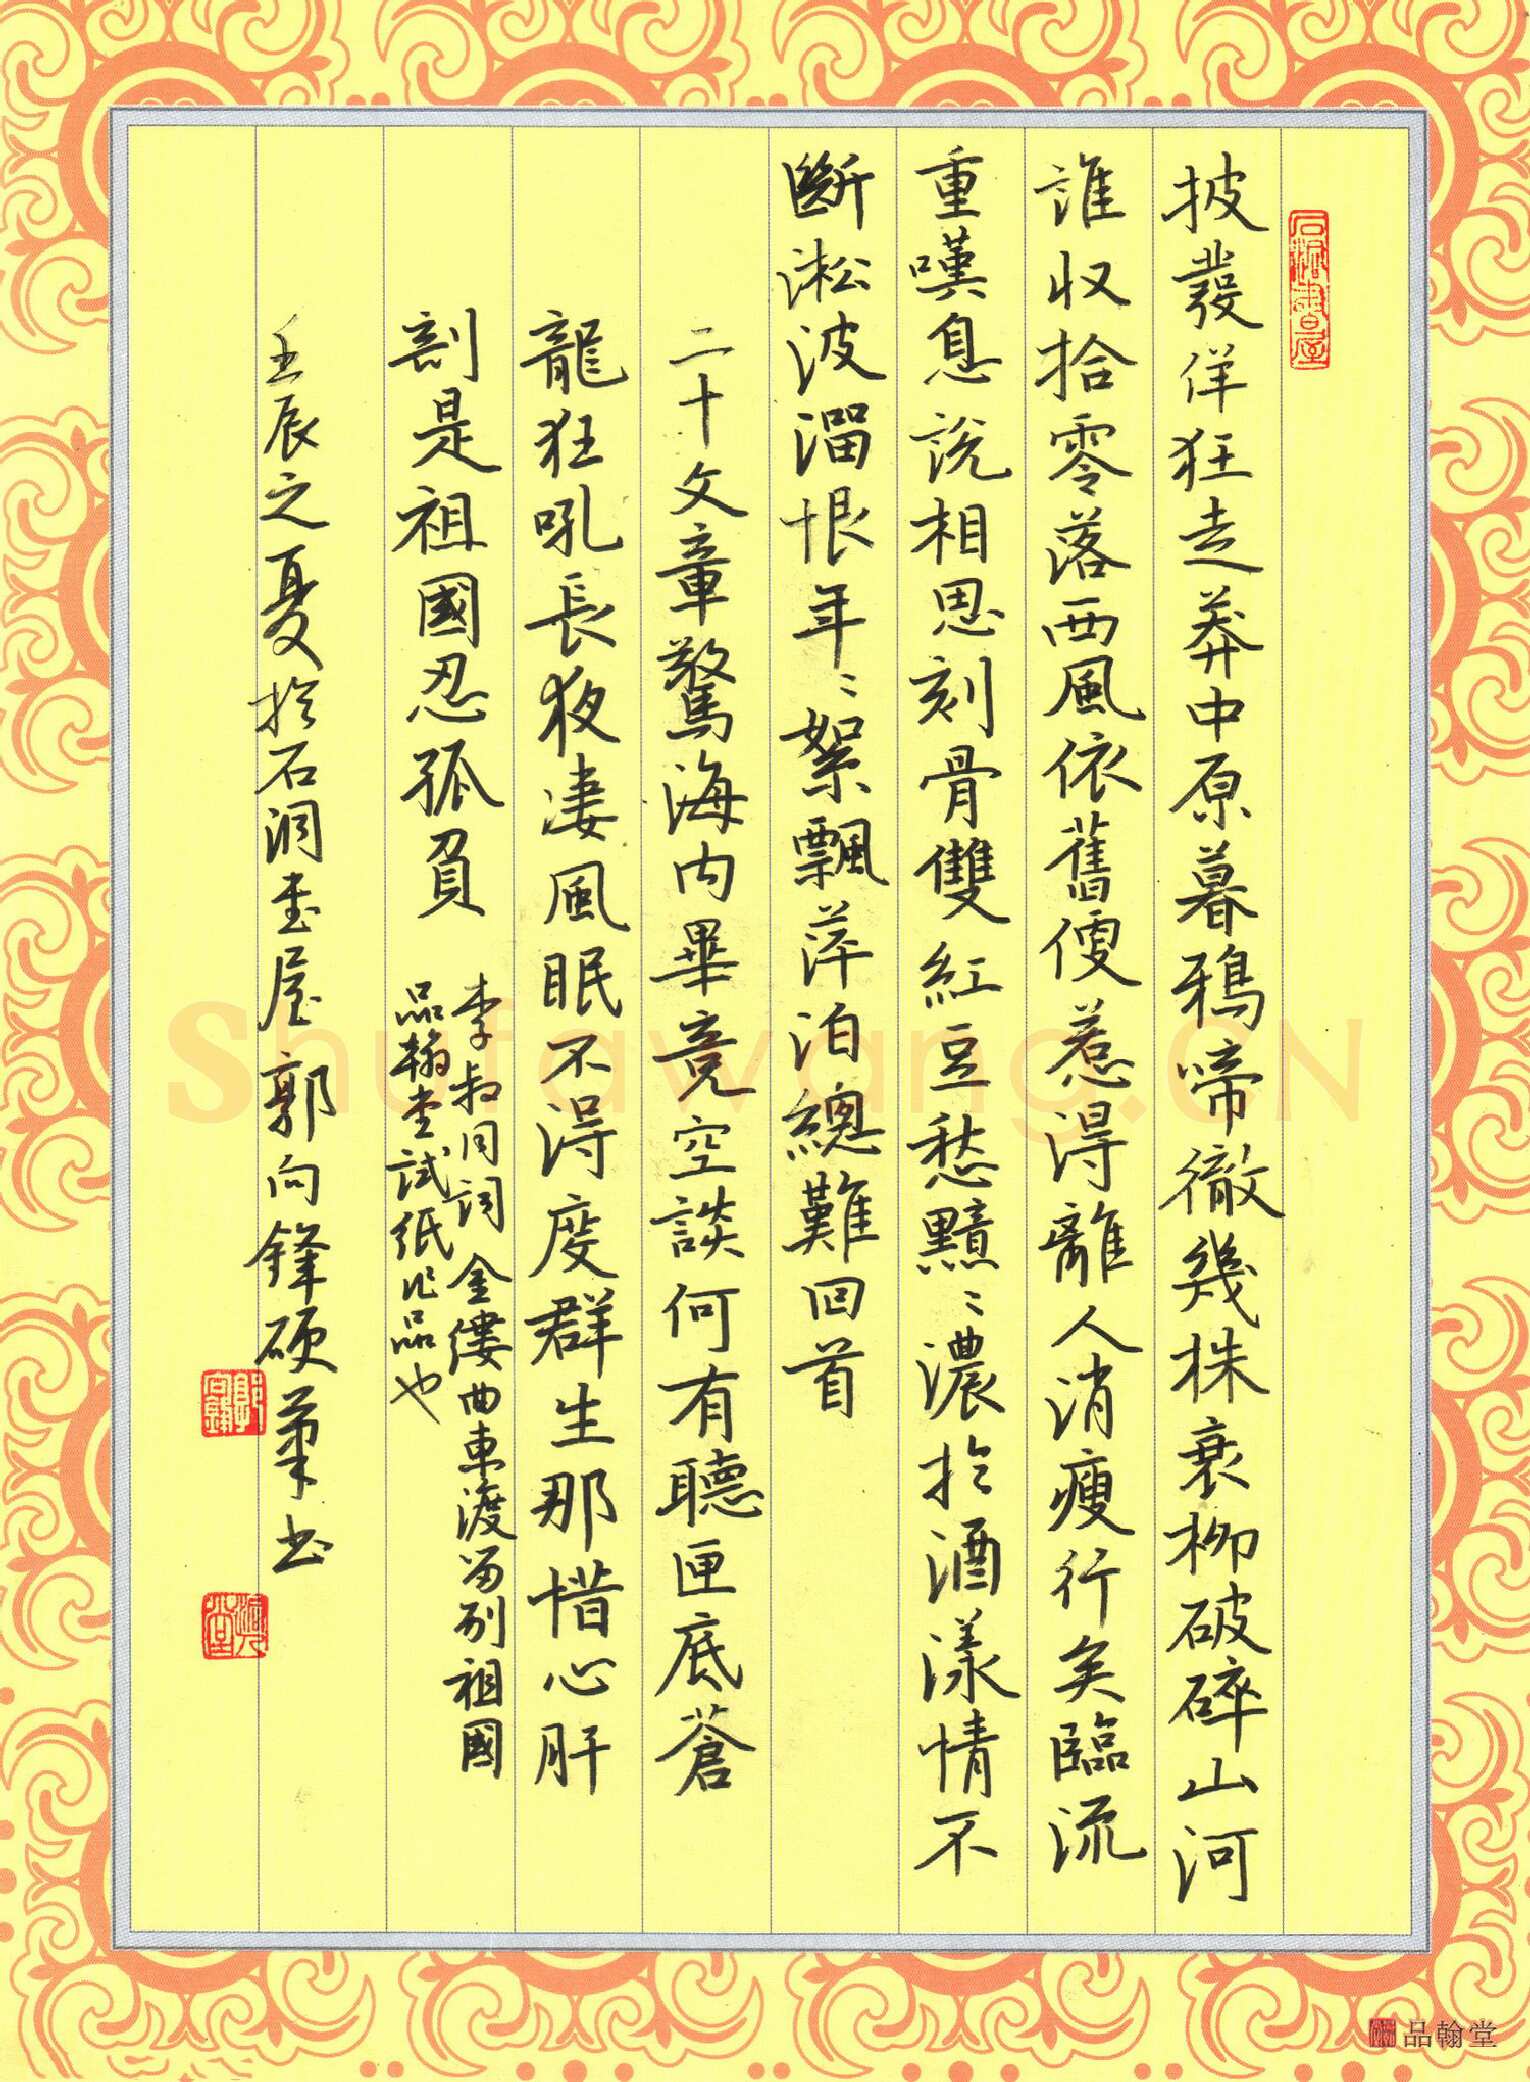 石洞書屋
披發佯狂走莽中原暮鴉啼徹幾株衰柳破碎山河
誰收拾零落西風依舊便惹得離人消瘦行矣臨流
重嘆息說相思刻骨雙紅豆愁黯〻濃於酒漾情不
斷淞波溜恨年〻絮飄萍泊總難回首
二十文章驚海內畢竟空談何有聽匣底蒼
龍狂吼長夜淒風眠不得度群生那惜心肝
剖是祖國忍孤負
李叔同詞金縷曲東渡留別祖國
品翰堂試紙作品也
壬辰之夏於石洞書屋郭向鋒硬筆书
Shufawang.CN
品翰堂